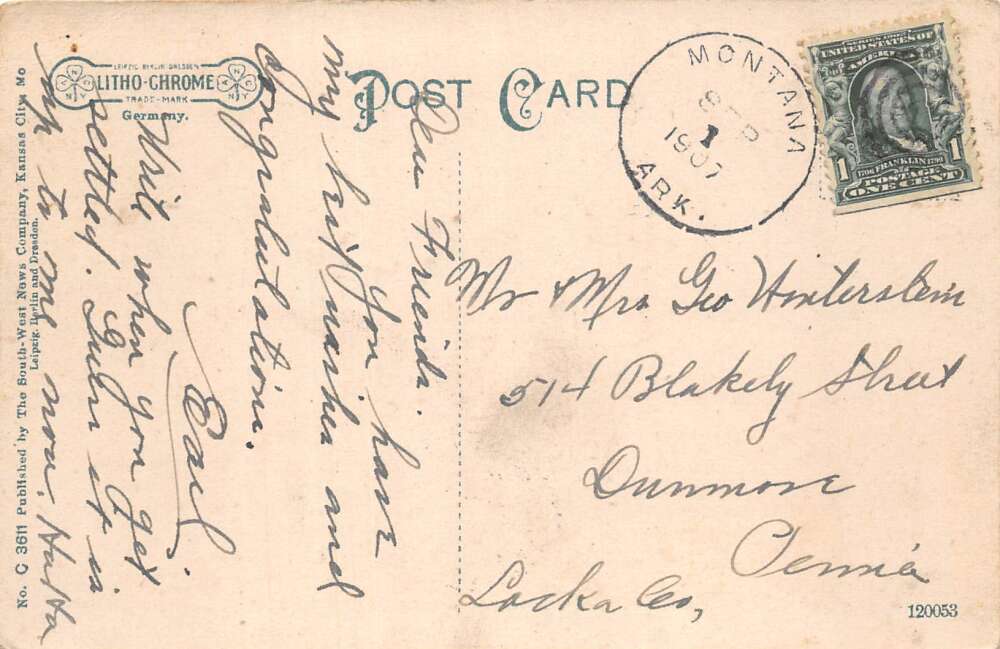 LEIPZIG BERLIN DRESDEN
LITHO-CHROME
TRADE-MARK
Germany.
POST CARD
MONTANA
ARK.
SEP
1
1907
SERIES 1902
UNITED STATES OF
AMERICA
1706 FRANKLIN 1790
POSTAGE
1 ONE CENT 1
Dear Friends.
You have
my best wishes and
Congratulations.
Earl
Write when you get
settled. Guess it is
up to me now. Ha Ha
Mr & Mrs Geo Winterstein
514 Blakely Street
Dunmore
Penn'a
Lacka Co,
No. C 3611 Published by The South-West News Company, Kansas City, Mo
Leipzig, Berlin and Dresden.
120053